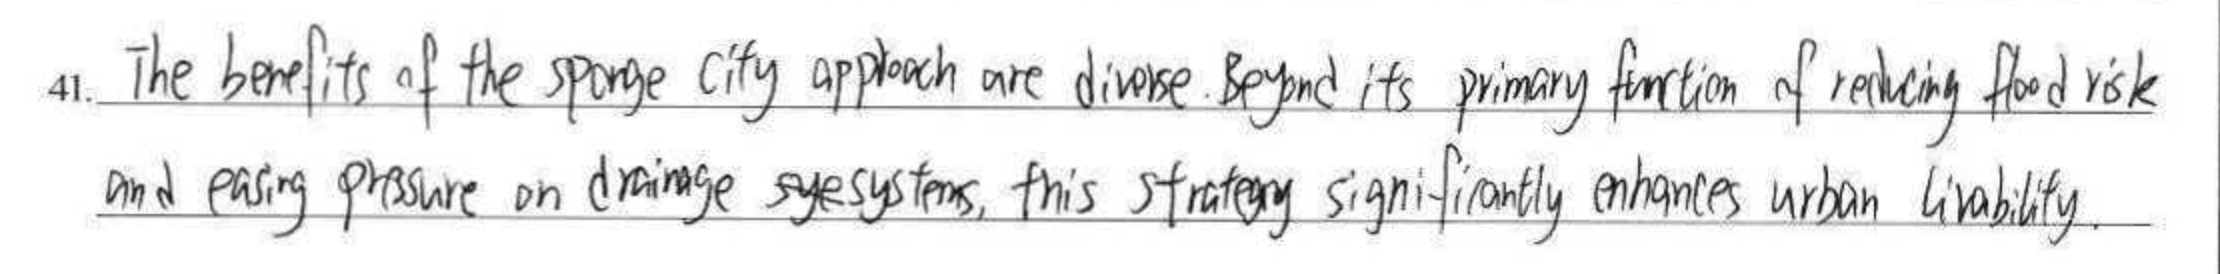 41. The benefits of the sponge city approach are diverse. Beyond its primary function of reducing flood risk
and easing pressure on drainage syesystems, this strategy significantly enhances urban livability.